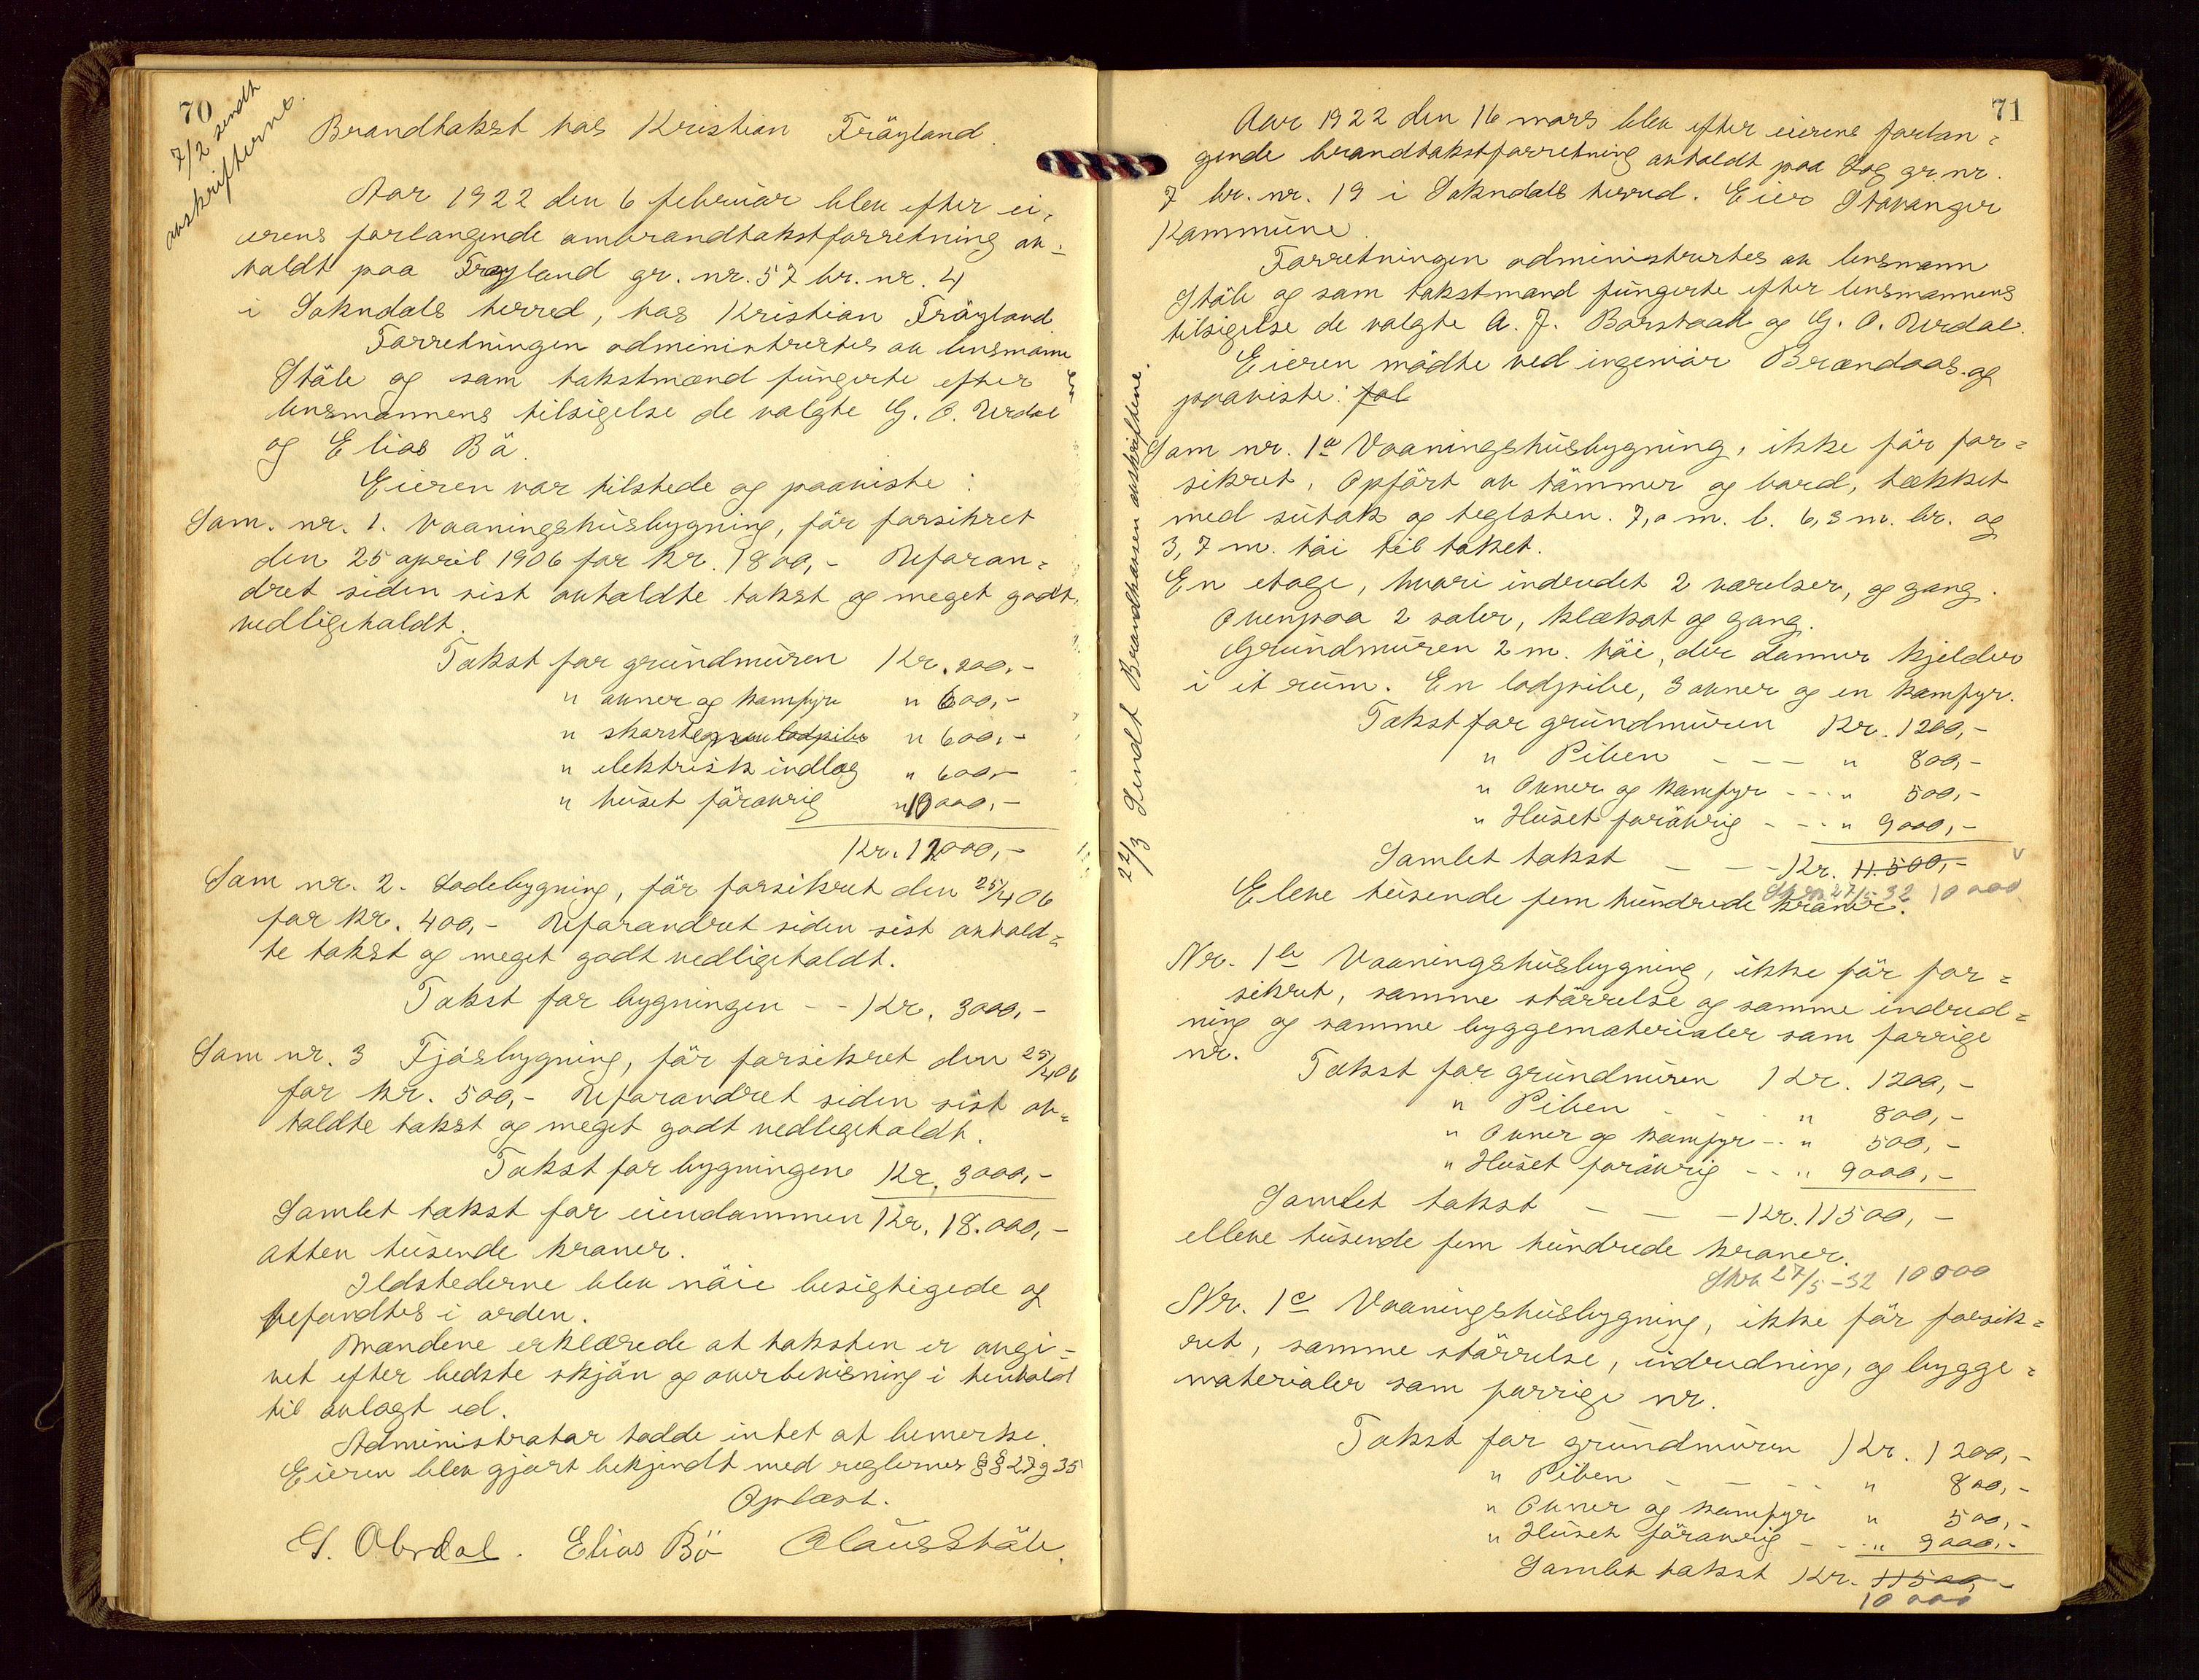 70
7/2 sendt
avskrifterne.
Brandtakst hos Kristian Fröyland.
Aar 1922 den 6 februar blev efter ei-
erens forlangende ombrandtakstforretning av-
holdt paa Fröyland gr. nr. 57 br. nr. 4
i Sokndals herred, hos Kristian Fröyland.
Forretningen administrertes av lensmann
Ståle og som takstmænd fungerte efter
lensmannens tilsigelse de valgte G. O. Urdal
og Elias Bö.
Eieren var tilstede og paaviste:
Som. nr. 1. Vaaningshusbygning, för forsikret
den 25 april 1906 for kr. 1800,- Uforan-
dret siden sist avholdte takst og meget godt
vedligeholdt.
Takst for grundmuren Kr. 200,-
" ovner og komfyr " 600,-
" skorsten " 600,-
" elektrisk indlæg " 600,-
" huset föravrig " 10000,-
Kr. 12000,-
Som nr. 2. Lodebygning, för forsikret den 25/4 06
for kr. 400,- Uforandret siden sist avhold-
te takst og meget godt vedligeholdt.
Takst for bygningen - - Kr. 3000,-
Som nr. 3 Fjösbygning, för forsikret den 25/4 06
for kr. 500,- Uforandret siden sist av-
holdte takst og meget godt vedligeholdt.
Takst for bygningen Kr. 3000,-
Samlet takst for eiendommen Kr. 18.000,-
atten tusende kroner.
Ildstederne blev nöie besigtigede og
befandtes i orden.
Mændene erklærede at taksten er avgi-
vet efter bedste skjön og overbevisning i henhold
til avlagt ed.
Administrator hadde intet at bemerke.
Eieren blev gjort bekjendt med reglernes §§ 27 og 35
Oplæst.
G. O. Urdal. Elias Bö Olaus Ståle.
71
22/3 Sendt Brandkassen avskriftene.
Aar 1922 den 16 mars blev efter eierens forlan-
gende brandtakstforretning avholdt paa Log gr. nr.
7 br. nr. 19 i Sokndals herred. Eier Stavanger
Kommune.
Forretningen administrertes av lensmann
Ståle og som takstmænd fungerte efter lensmannens
tilsigelse de valgte A. J. Barstad og G. O. Urdal.
Eieren mödte ved ingeniör Brændaas og
paaviste: fol
Som nr. 1a Vaaningshusbygning, ikke för for-
sikret, Opfört av tömmer og bord, tækket
med sutak og teglsten. 7,0 m. l. 6,3 m. br. og
3,7 m. höi til taket.
En etage, hvori indredet 2 værelser, og gang.
Ovenpaa 2 saler, klækot og gang.
Grundmuren 2 m. höi, der danner kjelder
i et rum. En lodpibe, 3 ovner og en komfyr.
Takst for grundmuren Kr. 1200,-
" Piben - - - " 800,-
" Ovner og komfyr - - - " 500,-
" Huset forövrig - - - " 9000,-
Samlet takst - - - Kr. 11.500,-
Eleve tusende fem hundrede kroner. 27/5-32 10000
Nr. 1b Vaaningshusbygning, ikke för for-
sikret, samme störrelse og samme indred-
ning og samme byggematerialer som forrige
nr.
Takst for grundmuren Kr. 1200,-
" Piben - - - " 800,-
" Ovner og komfyr - - " 500,-
" Huset forövrig - - " 9000,-
Samlet takst - - - Kr. 11500,-
elleve tusende fem hundrede kroner.
27/5-32 10000
Nr. 1c Vaaningshusbygning, ikke för forsik-
ret, samme störrelse, indredning, og bygge-
materialer som forrige nr.
Takst for grundmuren Kr. 1200,-
" Piben - - - " 800,-
" Ovner og komfyr " 500,-
" Huset föravrig - - " 9000,-
Samlet takst Kr. 11500,-
10000